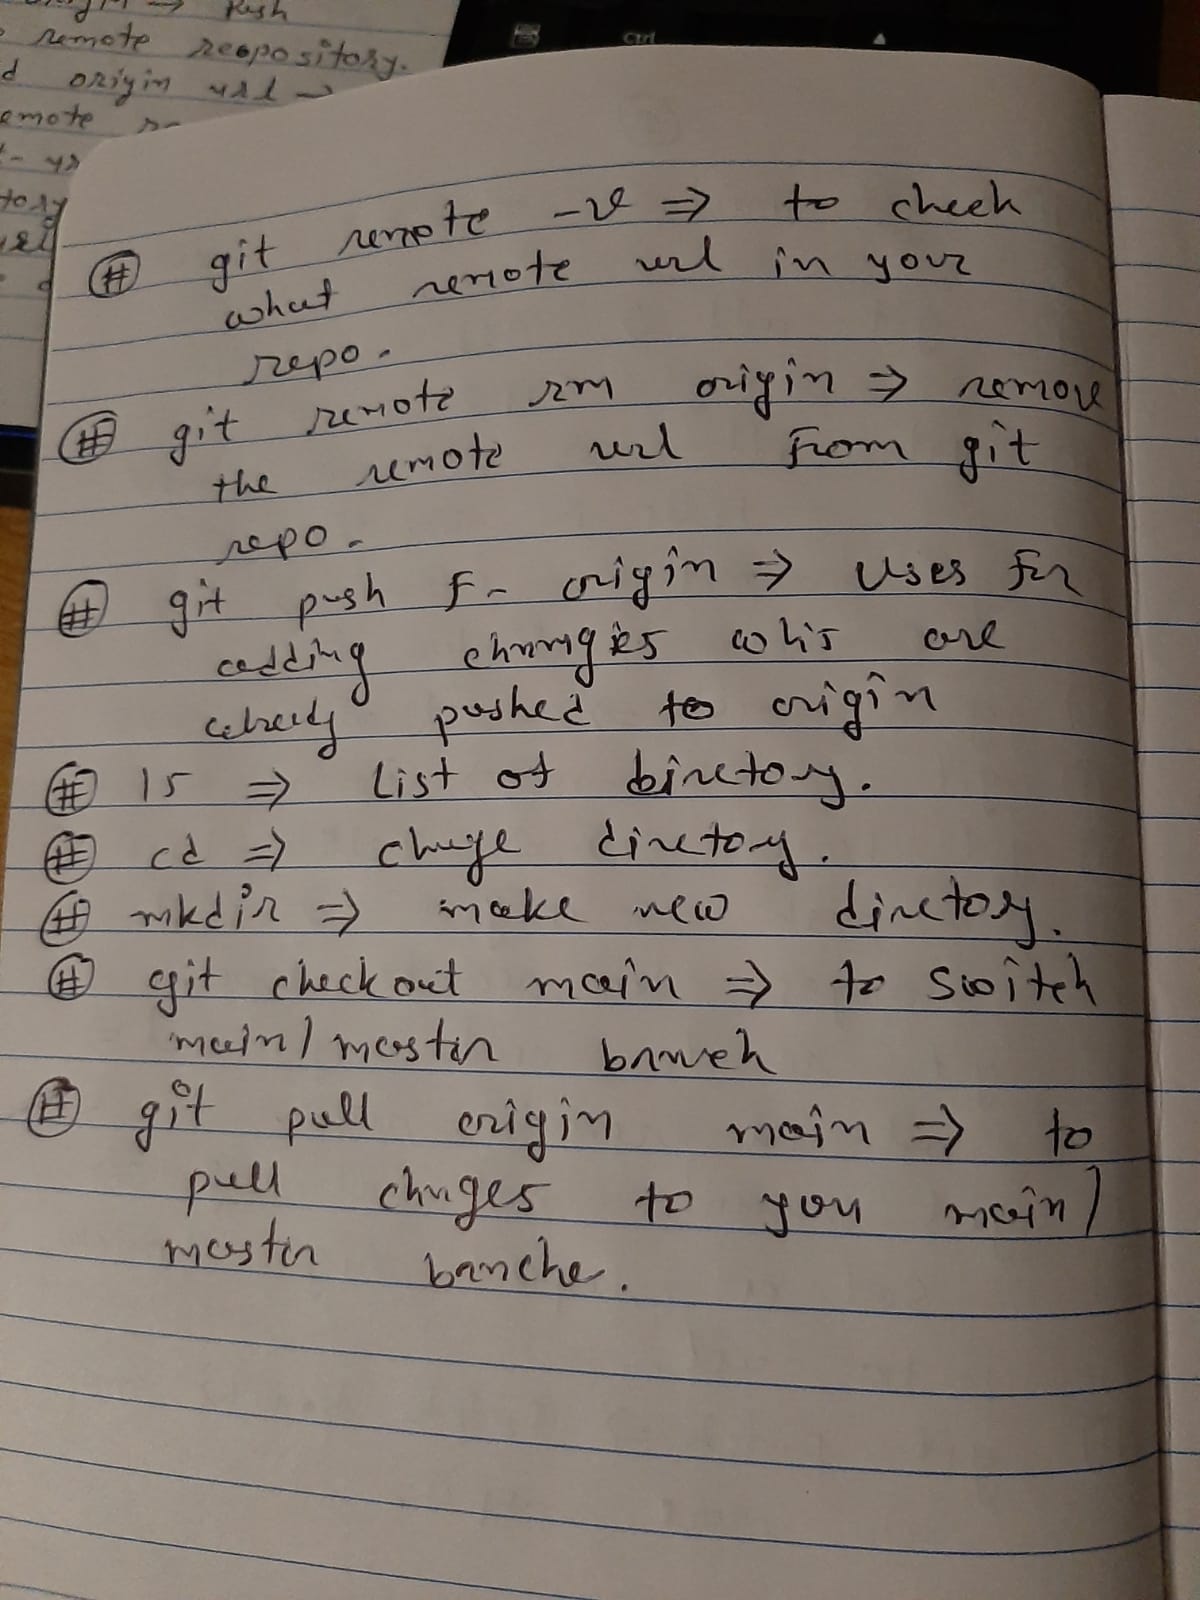 Push
remote reopository.
d origin url →
emote
tory
# git remote -v ⇒ to check
what remote url in your
repo.
# git remote rm origin ⇒ remove
the remote url from git
repo.
# git push F- origin ⇒ Uses for
adding changies whis are
alredy pushed to origin
# ls ⇒ List of directory.
# cd ⇒ change directory.
# mkdir ⇒ make new directory.
# git checkout main ⇒ to switch
main/master branch
# git pull origin main ⇒ to
pull chnges to you main/
master branche.
Ctrl